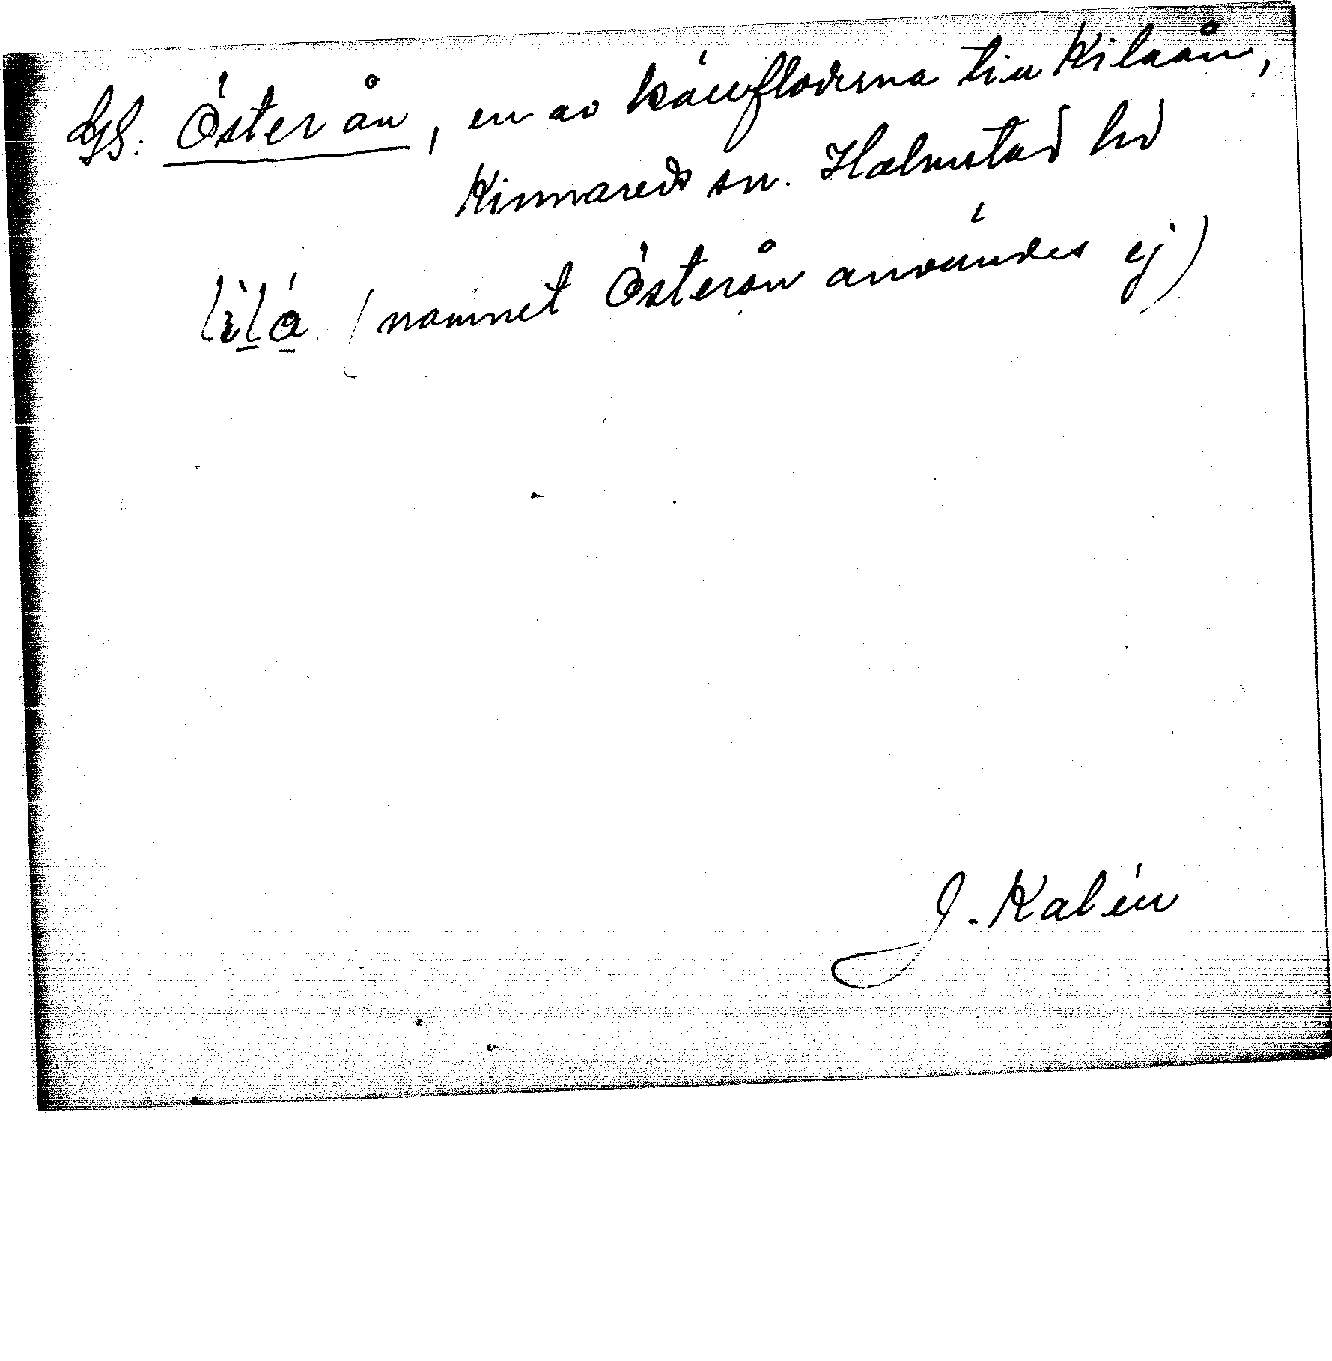 GS. Österån, en av källfloderna till Kilaån,
Kinnareds sn. Halmstad hd
lilå (namnet Österån användes ej)
J. Kalén